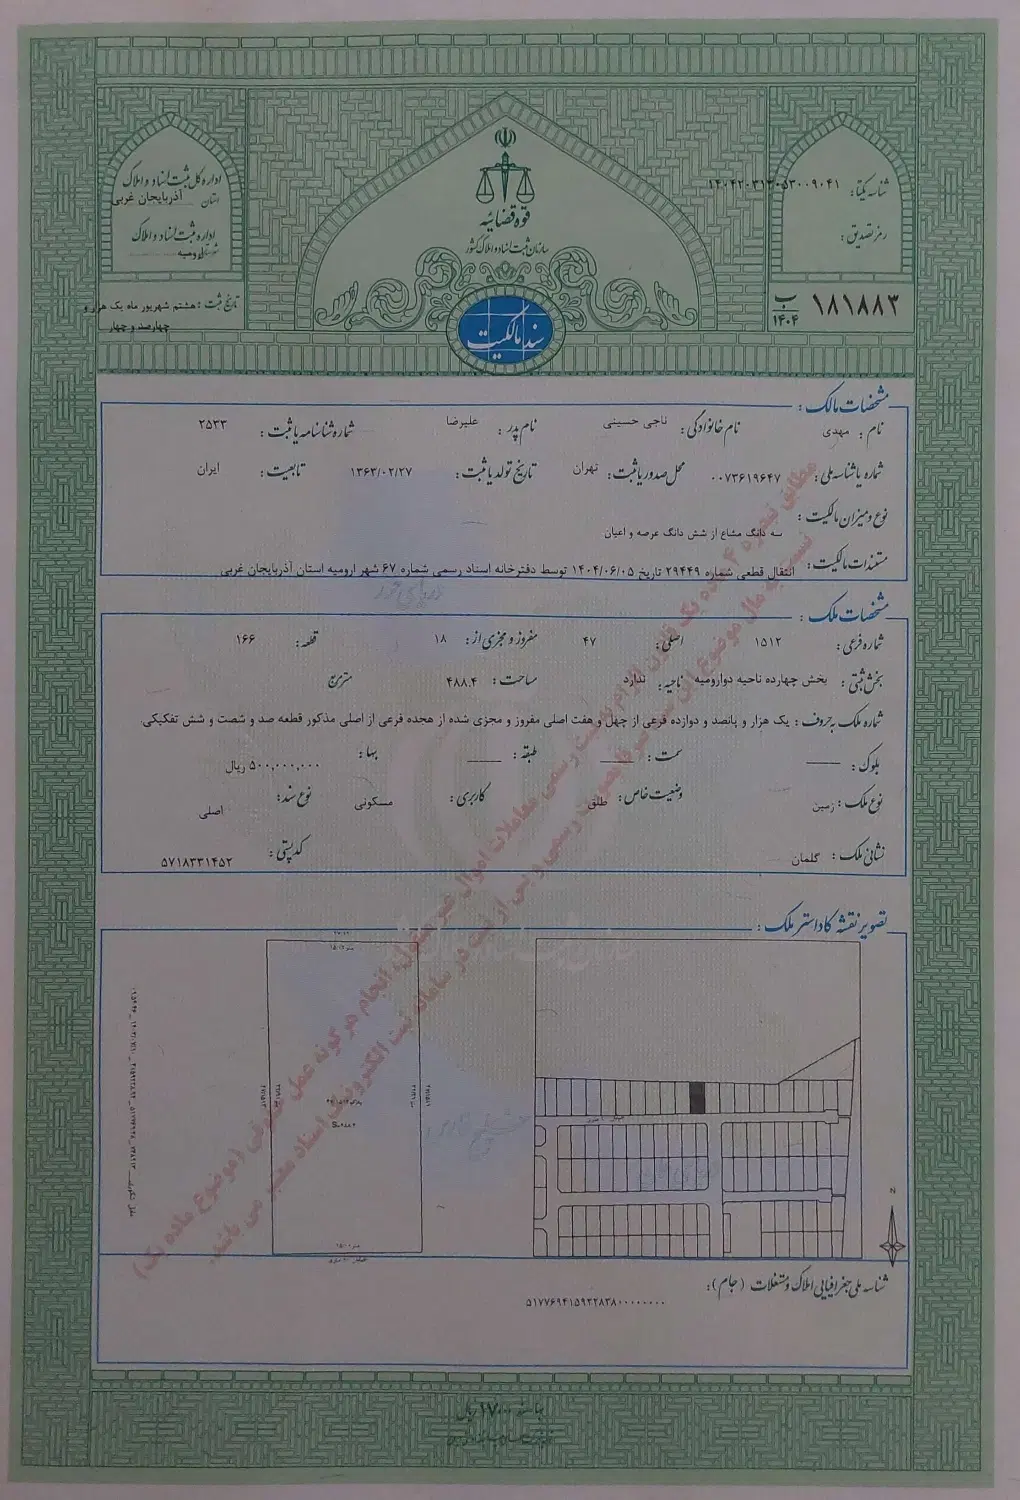 قوه قضائیه
سازمان ثبت اسناد و املاک کشور
سند مالکیت
شناسه یکتا: ۱۴۰۴۲۰۳۱۳۰۵۳۰۰۹۰۴۱
رمز تصدیق:
۱۸۱۸۸۳ ب ۱۴۰۴
اداره کل ثبت اسناد و املاک
استان آذربایجان غربی
اداره ثبت اسناد و املاک
شهرستان ارومیه
تاریخ ثبت: هشتم شهریور ماه یک هزار و
چهارصد و چهار
مشخصات مالک:
نام: مهدی نام خانوادگی: ناجی حسینی نام پدر: علیرضا شماره شناسنامه یا ثبت: ۲۵۳۳
شماره یا شناسه ملی: ۰۰۷۳۶۱۹۶۴۷ محل صدور یا ثبت: تهران تاریخ تولد یا ثبت: ۱۳۶۳/۰۲/۲۷ تابعیت: ایران
نوع و میزان مالکیت:
سه دانگ مشاع از شش دانگ عرصه و اعیان
مستندات مالکیت: انتقال قطعی شماره ۲۹۴۴۹ تاریخ ۱۴۰۴/۰۶/۰۵ توسط دفترخانه اسناد رسمی شماره ۶۷ شهر ارومیه استان آذربایجان غربی
مشخصات ملک:
شماره فرعی: ۱۵۱۲ اصلی: ۴۷ مفروز و مجزی از: ۱۸ قطعه: ۱۶۶
بخش ثبتی: بخش چهارده ناحیه دو ارومیه ناحیه: ندارد مساحت: ۴۸۸.۴ مترمربع
شماره ملک به حروف: یک هزار و پانصد و دوازده فرعی از چهل و هفت اصلی مفروز و مجزی شده از هجده فرعی از اصلی مذکور قطعه صد و شصت و شش تفکیکی
بلوک: سمت: طبقه: بها: ۵۰۰,۰۰۰,۰۰۰ ریال
نوع ملک: زمین وضعیت خاص: طلق کاربری: مسکونی نوع سند: اصلی
نشانی ملک: گلمان کد پستی: ۵۷۱۸۳۳۱۴۵۲
تصویر نقشه کاداستر ملک:
N
شناسه ملی جغرافیایی املاک و مستغلات (جام):
۵۱۷۷۶۹۴۱۵۹۲۲۸۳۸۰۰۰۰۰۰۰۰۰